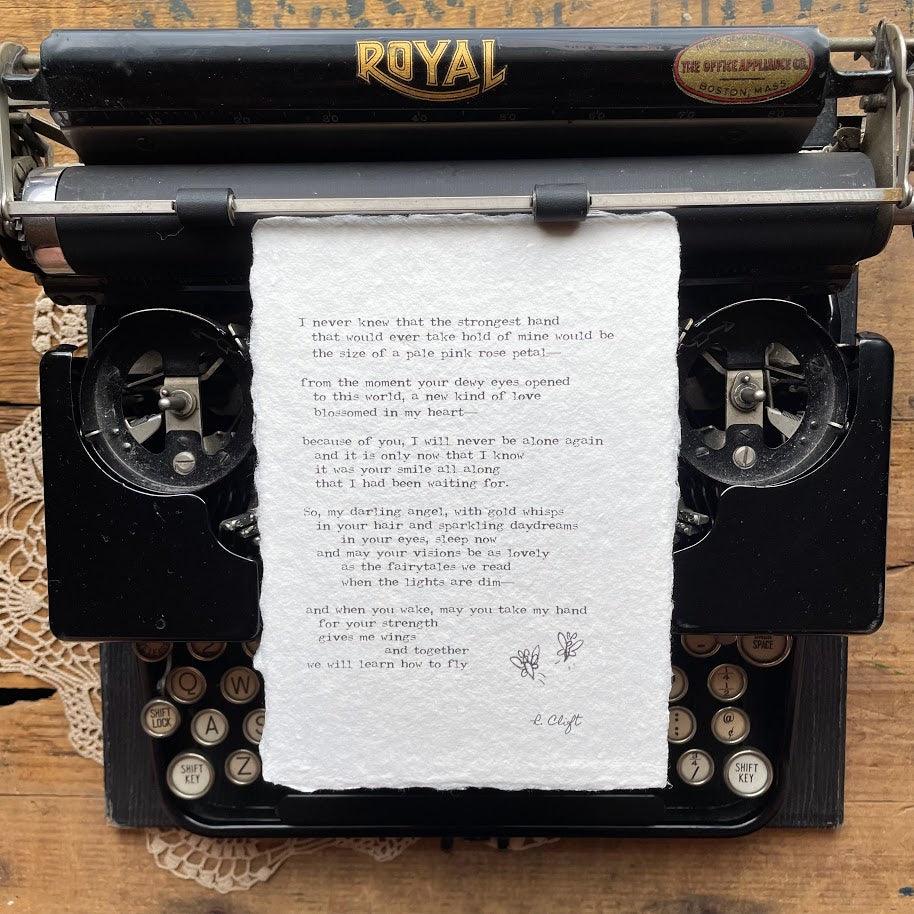 ROYAL
THE OFFICE APPLIANCE CO.
BOSTON, MASS
I never knew that the strongest hand
that would ever take hold of mine would be
the size of a pale pink rose petal—
from the moment your dewy eyes opened
to this world, a new kind of love
blossomed in my heart—
because of you, I will never be alone again
and it is only now that I know
it was your smile all along
that I had been waiting for.
So, my darling angel, with gold whisps
in your hair and sparkling daydreams
in your eyes, sleep now
and may your visions be as lovely
as the fairytales we read
when the lights are dim—
and when you wake, may you take my hand
for your strength
gives me wings
and together
we will learn how to fly
R. Clift
SPACE
Q W
SHIFT LOCK
A S
@ ¢
SHIFT KEY
Z
SHIFT KEY